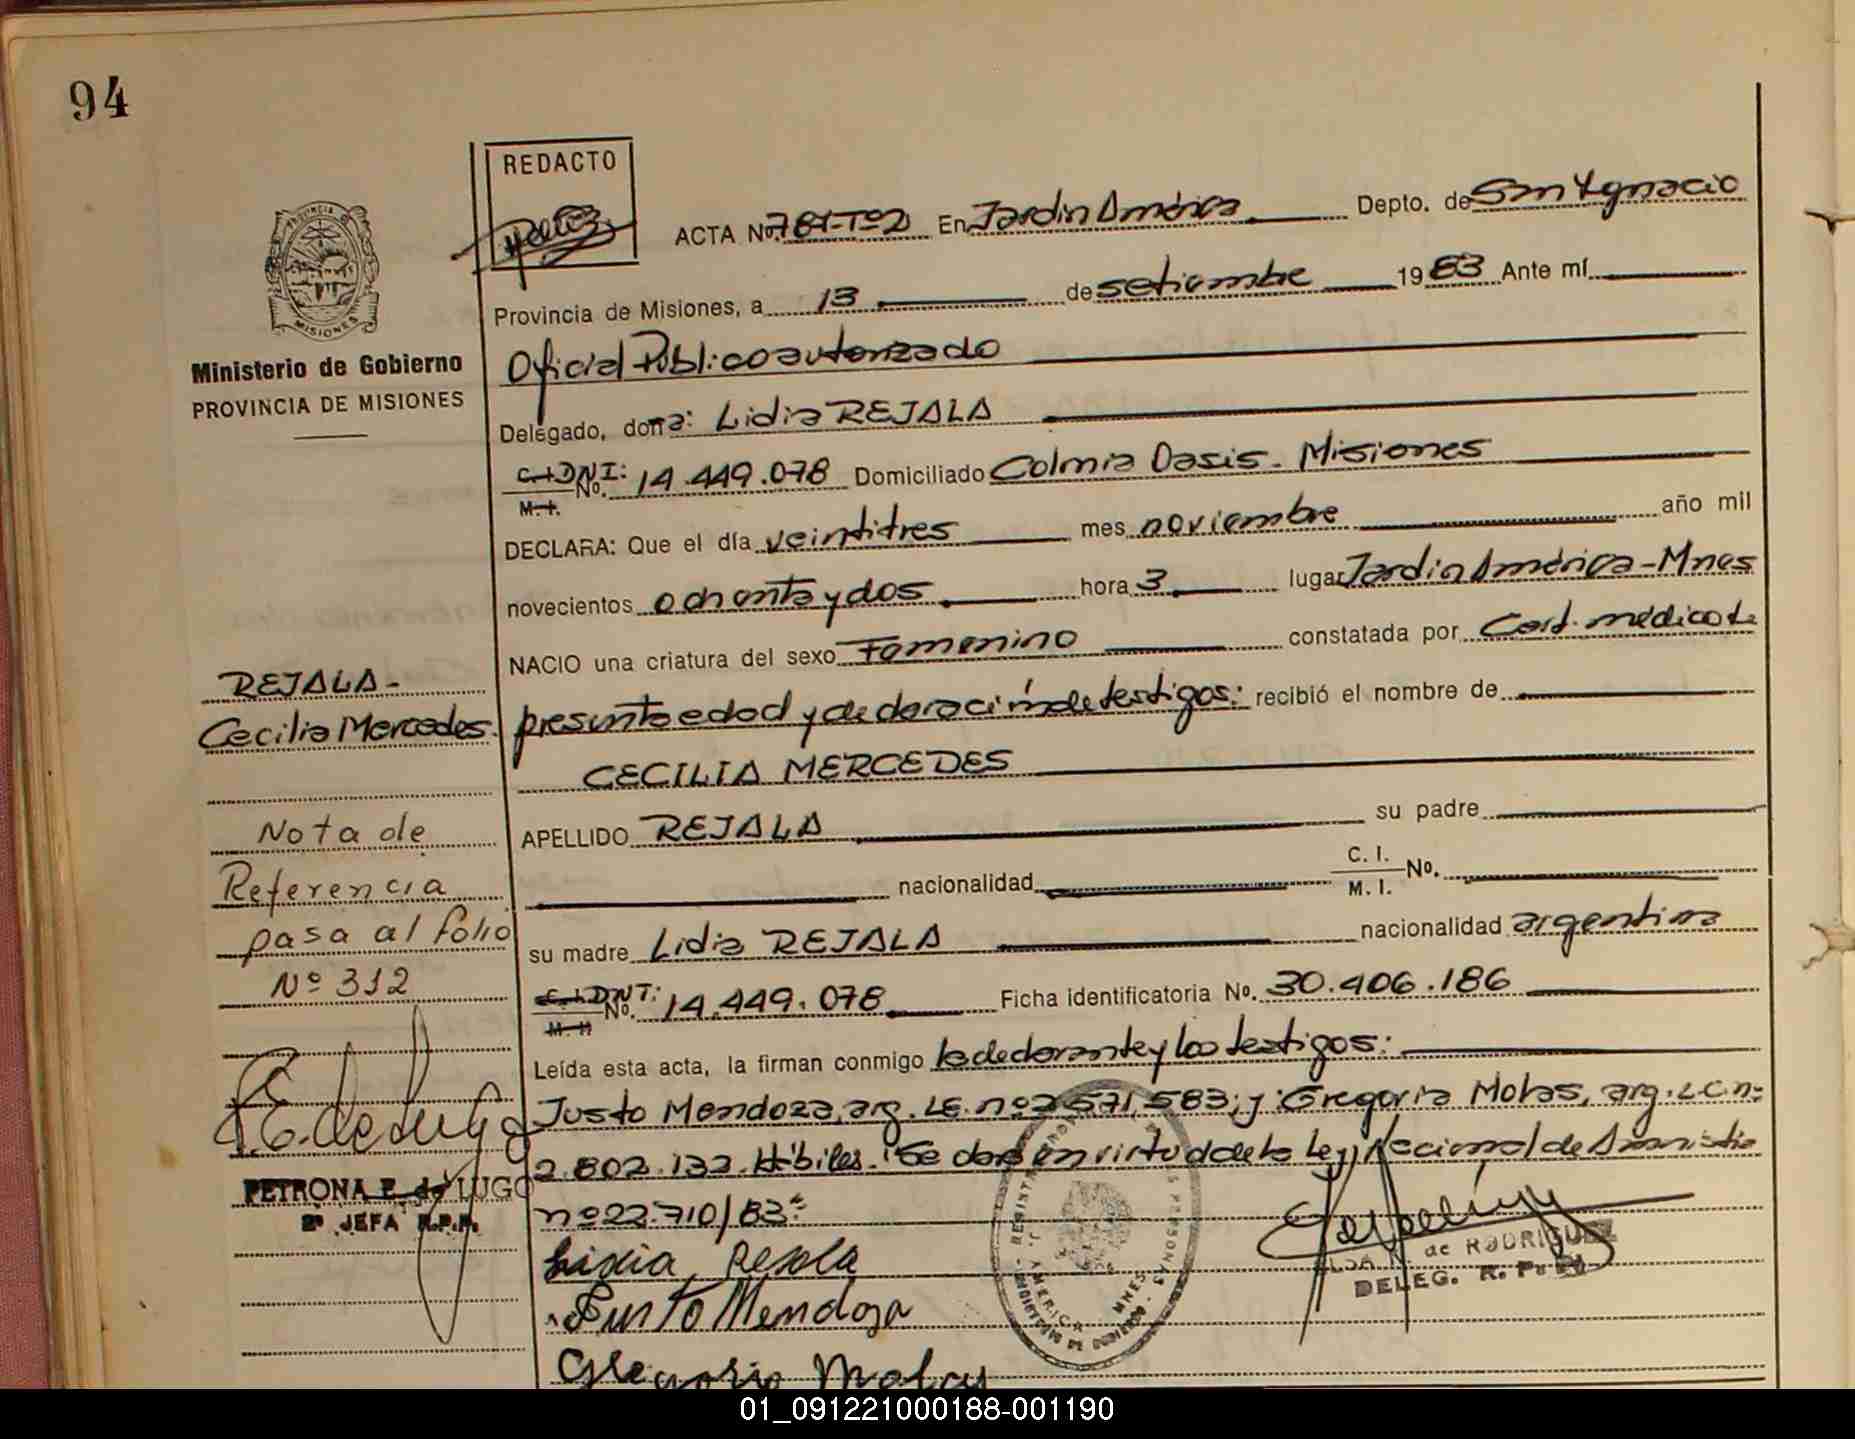 94
REDACTO
ACTA No. 781-Tº2 En Jardin América Depto. de San Ygnacio
Provincia de Misiones, a 13 de setiembre 1983 Ante mí
Oficial Público autorizado
Delegado, doña: Lidia REJALA
C.I. DNI: No. 14.449.078 Domiciliado Colonia Oasis - Misiones
M.I.
DECLARA: Que el día veintitres mes noviembre año mil
novecientos ochenta y dos hora 3 lugar Jardin América - Mnes
NACIO una criatura del sexo Femenino constatada por Cert. médico de
presunta edad y declaración de testigos: recibió el nombre de
CECILIA MERCEDES
APELLIDO REJALA su padre
nacionalidad C. I. No.
M. I.
su madre Lidia REJALA nacionalidad argentina
C.I. DNI: No. 14.449.078 Ficha identificatoria No. 30.406.186
M.I.
Leída esta acta, la firman conmigo la declarante y los testigos:
Justo Mendoza, arg. LE. nº 2571,583; y Gregoria Motas, arg. L C nº
2.802.132 Hábiles. Se labra en virtud de la Ley Nacional de Amnistia
nº 22.710/83
Lidia Rejala
Justo Mendoza
PROVINCIA DE
MISIONES
Ministerio de Gobierno
PROVINCIA DE MISIONES
REJALA-
Cecilia Mercedes.
Nota de
Referencia
pasa al folio
Nº 312
P. E. de Lugo
PETRONA E. de LUGO
2ª JEFA R.P.P.
J. AMERICA MNES
de RODRIGUEZ
DELEG. R. P.
01_091221000188-001190